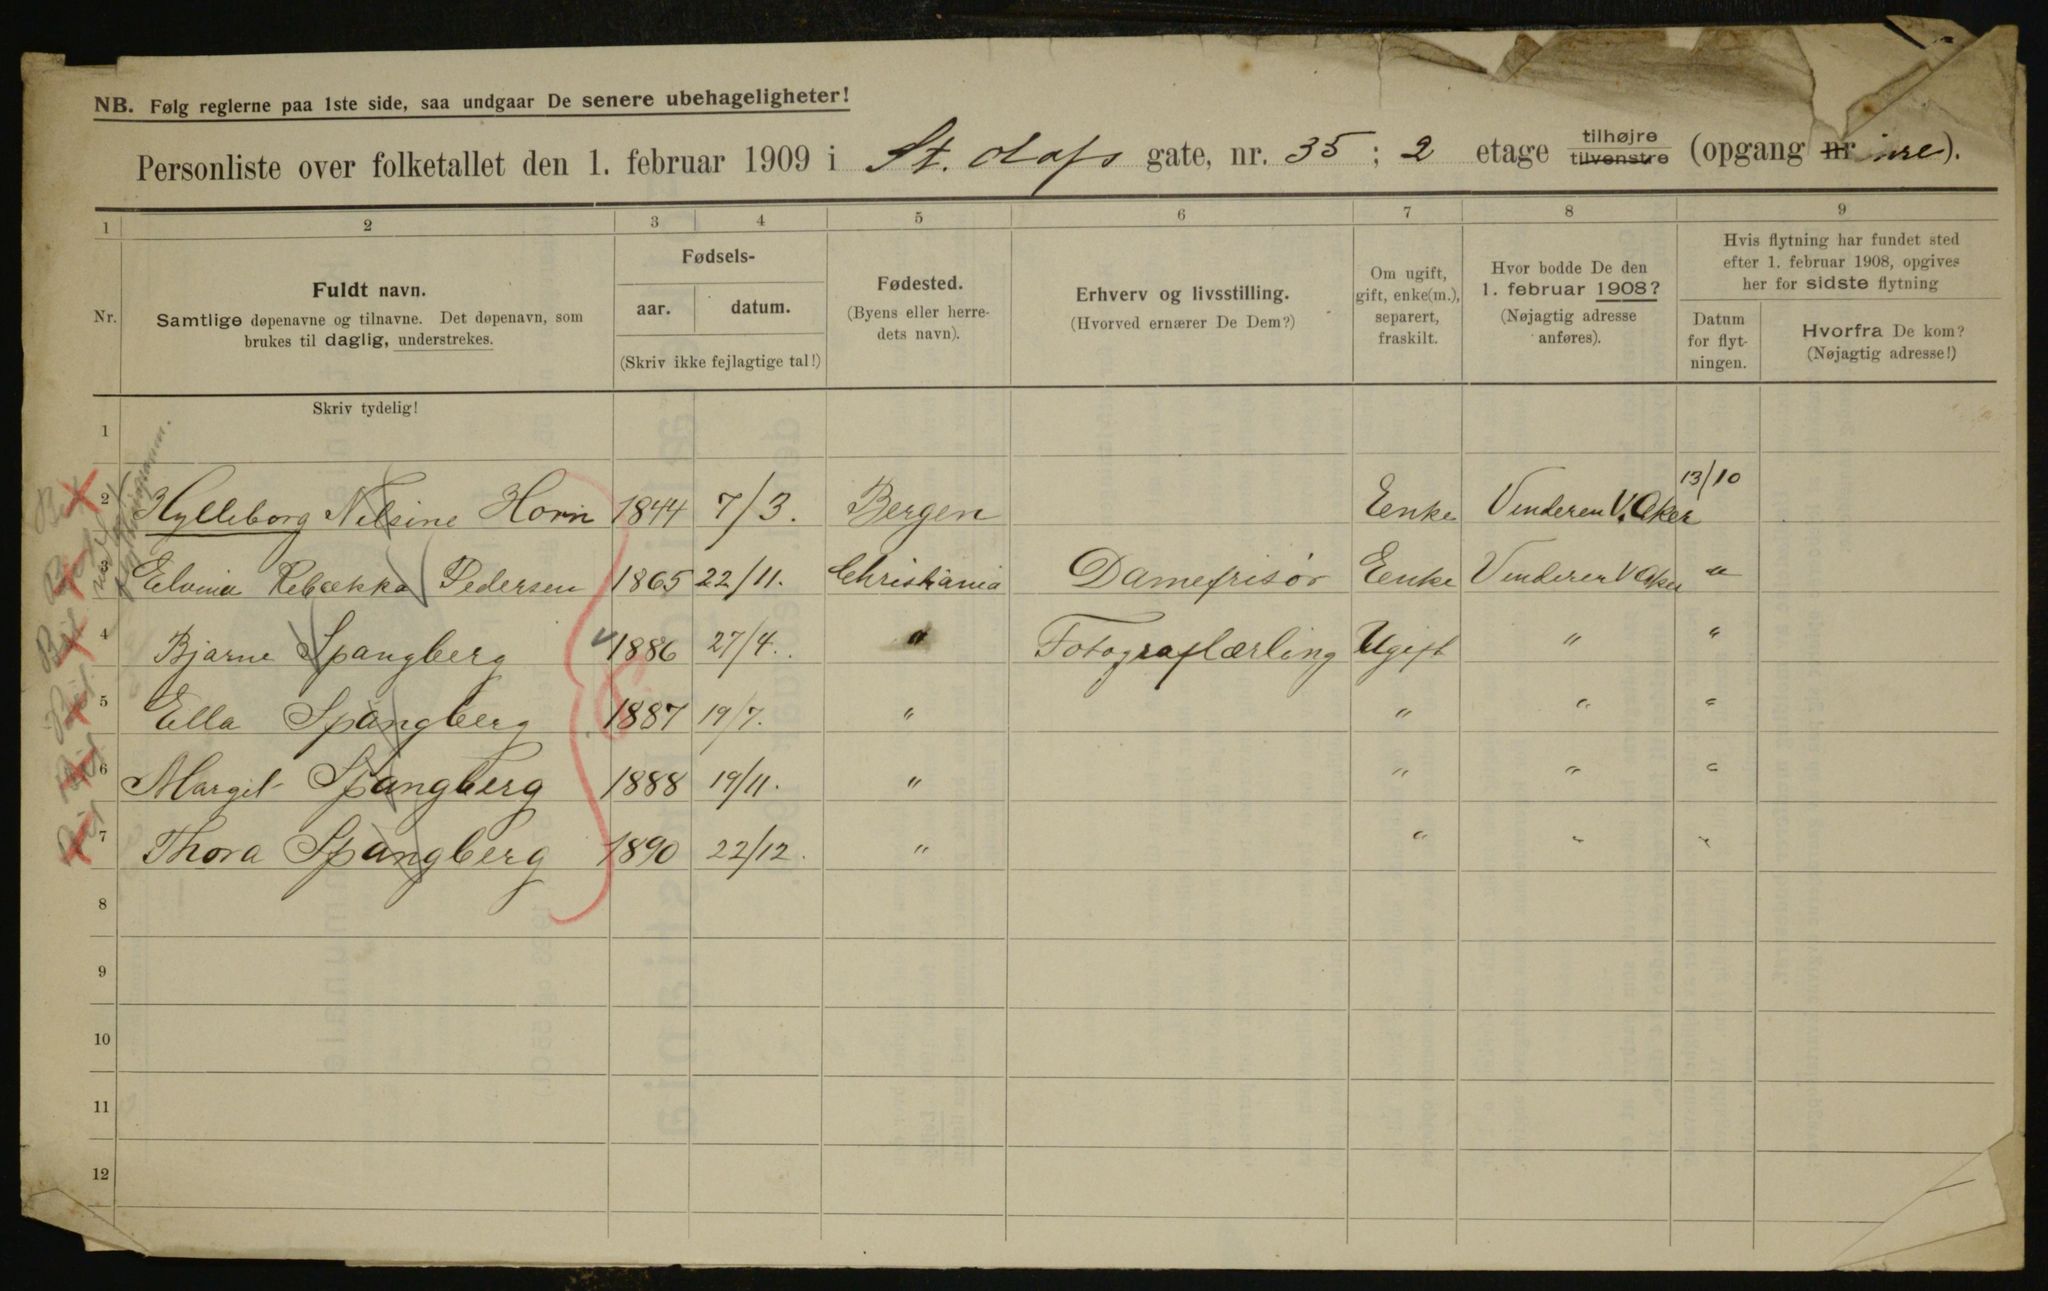 NB. Følg reglerne paa 1ste side, saa undgaar De senere ubehageligheter!
Personliste over folketallet den 1. februar 1909 i St. Olafs gate, nr. 35 ; 2 etage tilhøjre tilvenstre (opgang nr ).
1 2 3 4 5 6 7 8 9
Nr.
Fuldt navn.
Samtlige døpenavne og tilnavne. Det døpenavn, som
brukes til daglig, understrekes.
Fødsels-
aar. datum.
(Skriv ikke fejlagtige tal!)
Fødested.
(Byens eller herre-
dets navn).
Erhverv og livsstilling.
(Hvorved ernærer De Dem?)
Om ugift,
gift, enke(m.),
separert,
fraskilt.
Hvor bodde De den
1. februar 1908?
(Nøjagtig adresse
anføres).
Hvis flytning har fundet sted
efter 1. februar 1908, opgives
her for sidste flytning
Datum
for flyt-
ningen.
Hvorfra De kom?
(Nøjagtig adresse!)
Skriv tydelig!
1
2 Hylleborg Nilsine Horn 1844 7/3. Bergen Eenke Venderen V. Aker 13/10
3 Elvina Rebækka Pedersen 1865 22/11. Christiania Damefrisør Eenke Venderen V Aker "
4 Bjarne Spangberg 1886 27/4. " Fotograflærling Ugift " "
5 Ella Spangberg 1887 19/7. " " " "
6 Margit Spangberg 1888 19/11. " " " "
7 Thora Spangberg 1890 22/12. " " " "
8
9
10
11
12